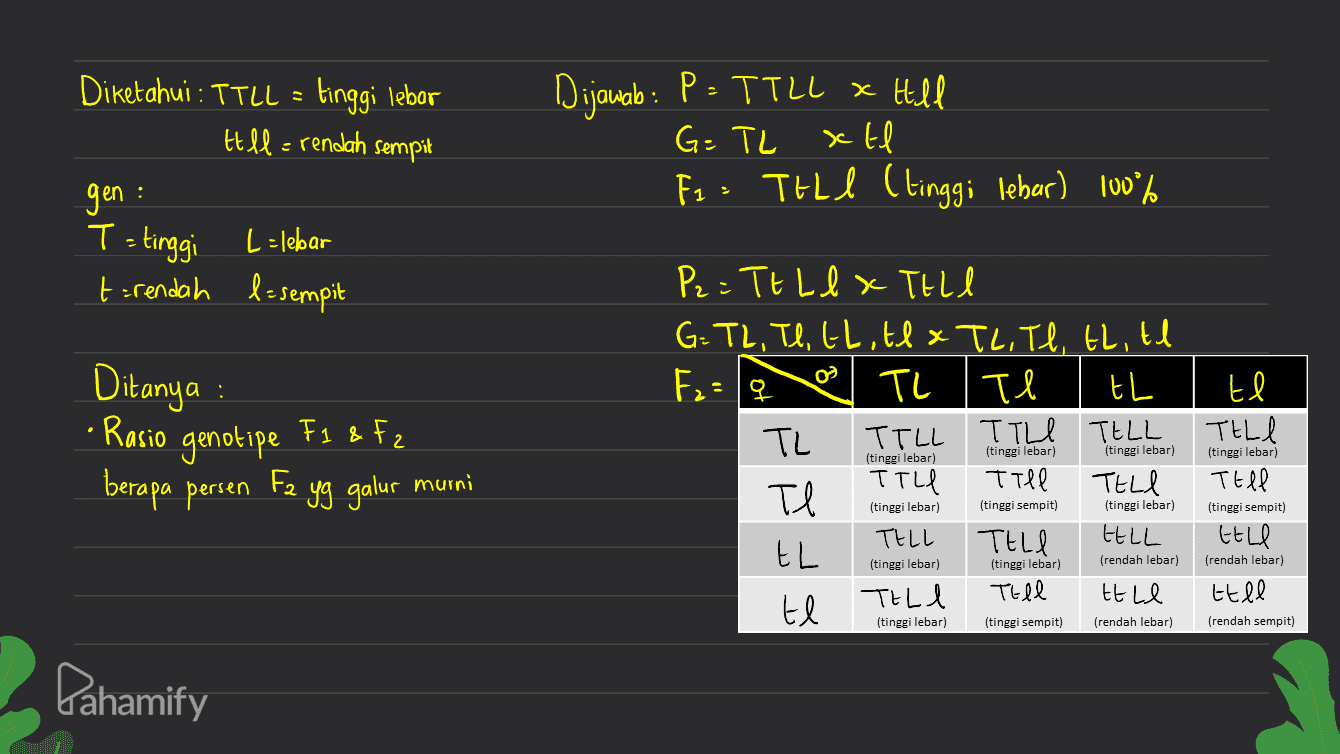 Diketahui : TTLL = tinggi lebar
ttll = rendah sempit
gen :
T = tinggi L = lebar
t = rendah l = sempit
Ditanya :
• Rasio genotipe F1 & F2
berapa persen F2 yg galur murni
Dijawab : P = TTLL x ttll
G = TL x tl
F1 = TtLl (tinggi lebar) 100%
P2 = TtLl x TtLl
G = TL, Tl, tL, tl x TL, Tl, tL, tl
F2 =
♀ ♂ TL Tl tL tl
TL TTLL TTLl TtLL TtLl
(tinggi lebar) (tinggi lebar) (tinggi lebar) (tinggi lebar)
Tl TTLl TTll TtLl Ttll
(tinggi lebar) (tinggi sempit) (tinggi lebar) (tinggi sempit)
tL TtLL TtLl ttLL ttLl
(tinggi lebar) (tinggi lebar) (rendah lebar) (rendah lebar)
tl TtLl Ttll ttLl ttll
(tinggi lebar) (tinggi sempit) (rendah lebar) (rendah sempit)
Pahamify